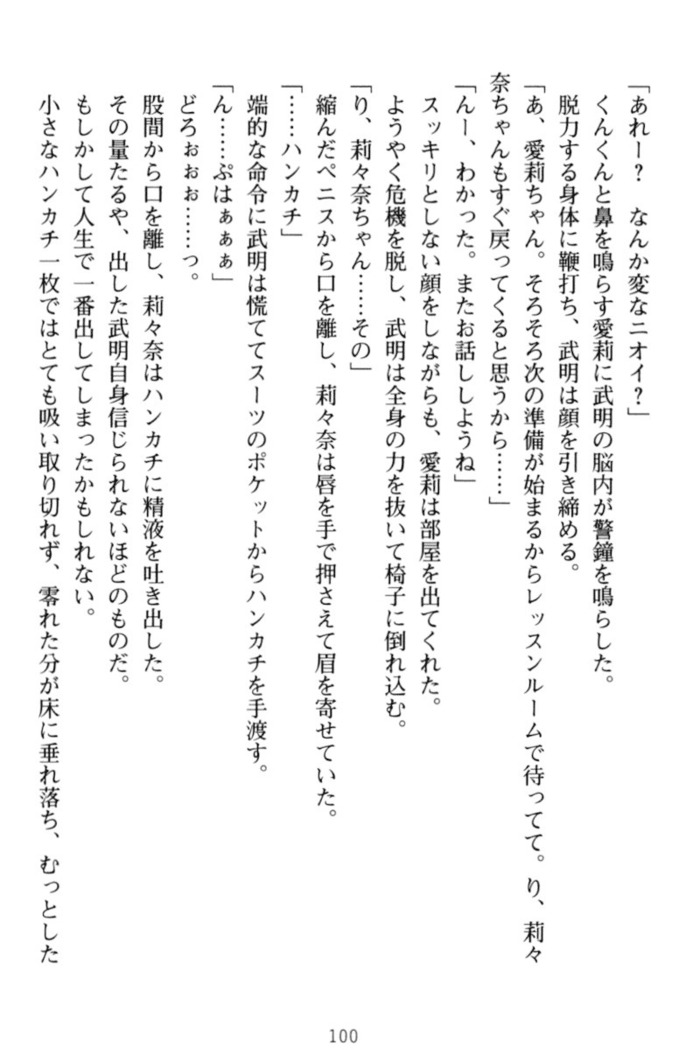 「あれー？　なんか変なニオイ？」
くんくんと鼻を鳴らす愛莉に武明の脳内が警鐘を鳴らした。
脱力する身体に鞭打ち、武明は顔を引き締める。
「あ、愛莉ちゃん。そろそろ次の準備が始まるからレッスンルームで待ってて。り、莉々
奈ちゃんもすぐ戻ってくると思うから……」
「んー、わかった。またお話ししようね」
スッキリとしない顔をしながらも、愛莉は部屋を出てくれた。
ようやく危機を脱し、武明は全身の力を抜いて椅子に倒れ込む。
「り、莉々奈ちゃん……その」
縮んだペニスから口を離し、莉々奈は唇を手で押さえて眉を寄せていた。
「……ハンカチ」
端的な命令に武明は慌ててスーツのポケットからハンカチを手渡す。
「ん……ぷはぁぁぁ」
どろぉぉぉ……っ。
股間から口を離し、莉々奈はハンカチに精液を吐き出した。
その量たるや、出した武明自身信じられないほどのものだ。
もしかして人生で一番出してしまったかもしれない。
小さなハンカチ一枚ではとても吸い取り切れず、零れた分が床に垂れ落ち、むっとした
100